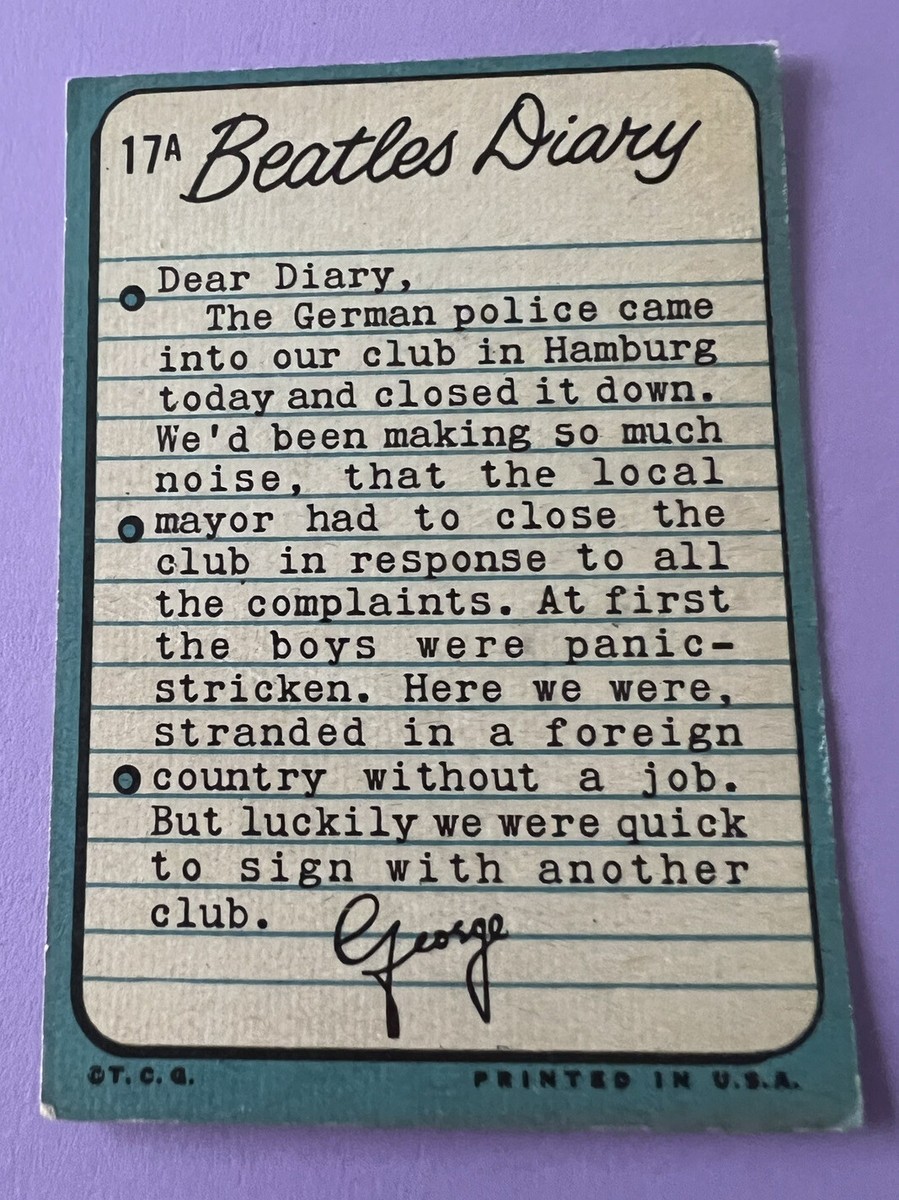 17A Beatles Diary
Dear Diary,
The German police came
into our club in Hamburg
today and closed it down.
We'd been making so much
noise, that the local
mayor had to close the
club in response to all
the complaints. At first
the boys were panic-
stricken. Here we were,
stranded in a foreign
country without a job.
But luckily we were quick
to sign with another
club. George
©T. C. G. PRINTED IN U.S.A.